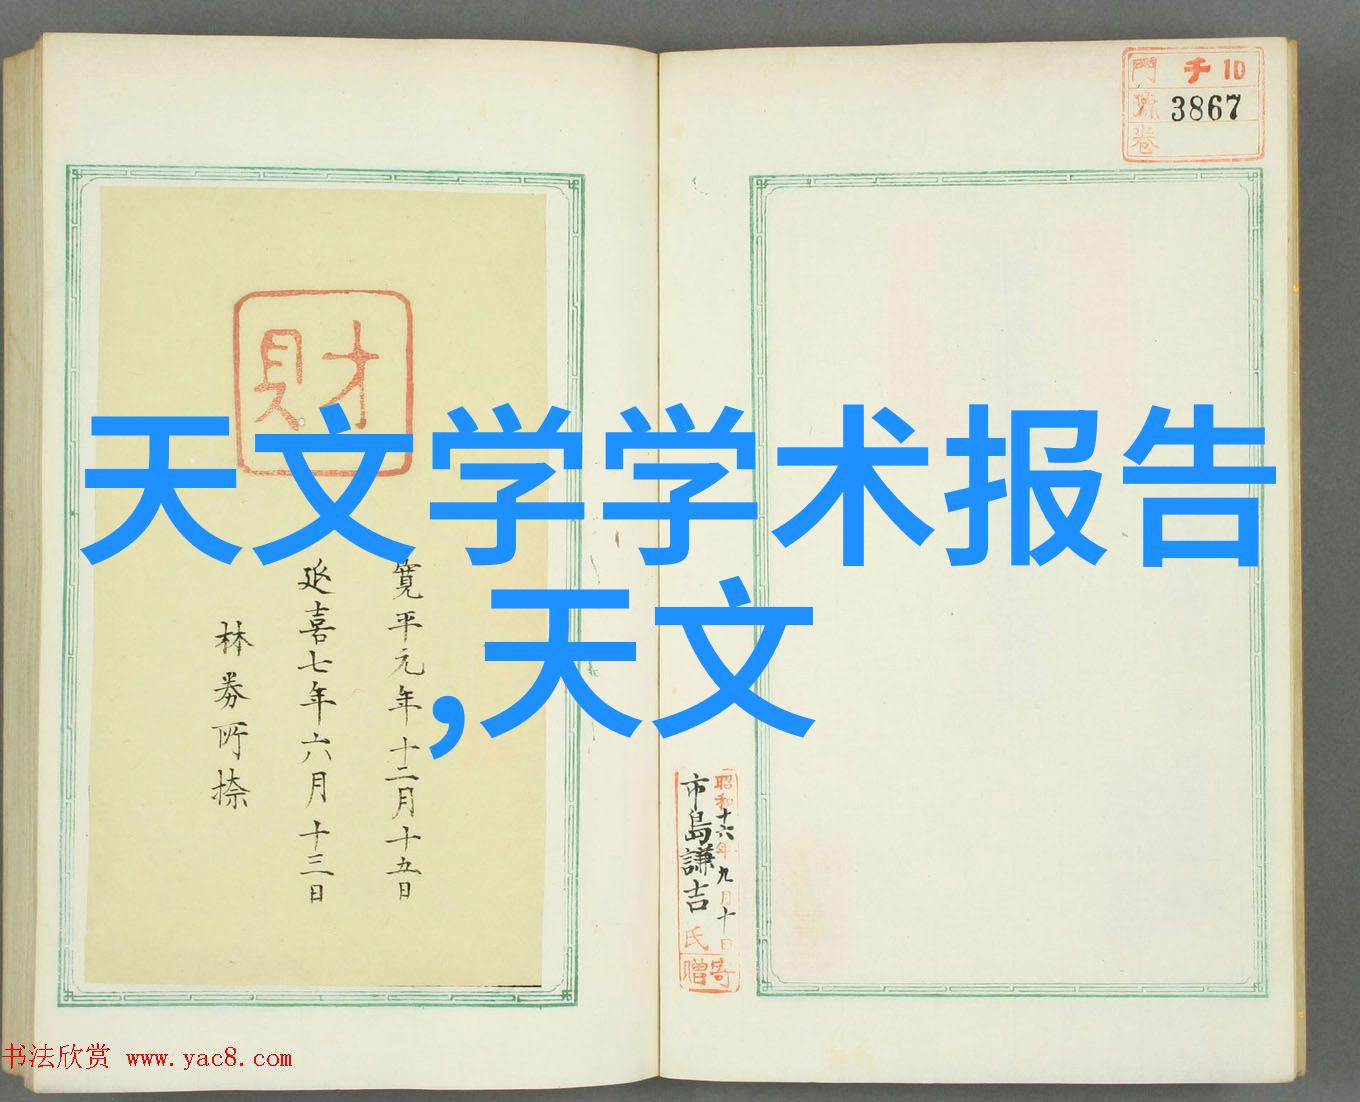 門 チ 10
號 3867
卷
財
寛平元年十二月十五日
延喜七年六月十三日
林券所捺
天文学学术报告
,天文
昭和十六年九月十日
市島謙吉氏
寄贈
书法欣赏 www.yac8.com